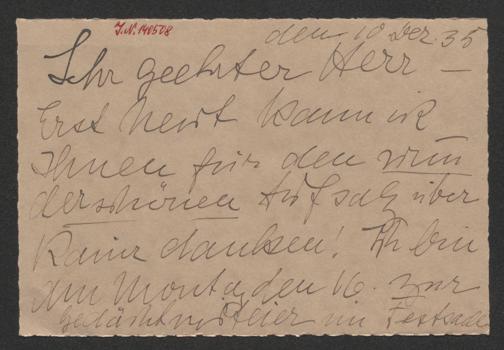 J.N. 140508
den 10 Dez. 35
Sehr geehrter Herr –
Erst heut kann ich
Ihnen für den wun
derschönen Aufsatz über
Kainz danken! Ich bin
am Montag den 16. zur
Gedächtnisfeier im Festsaal